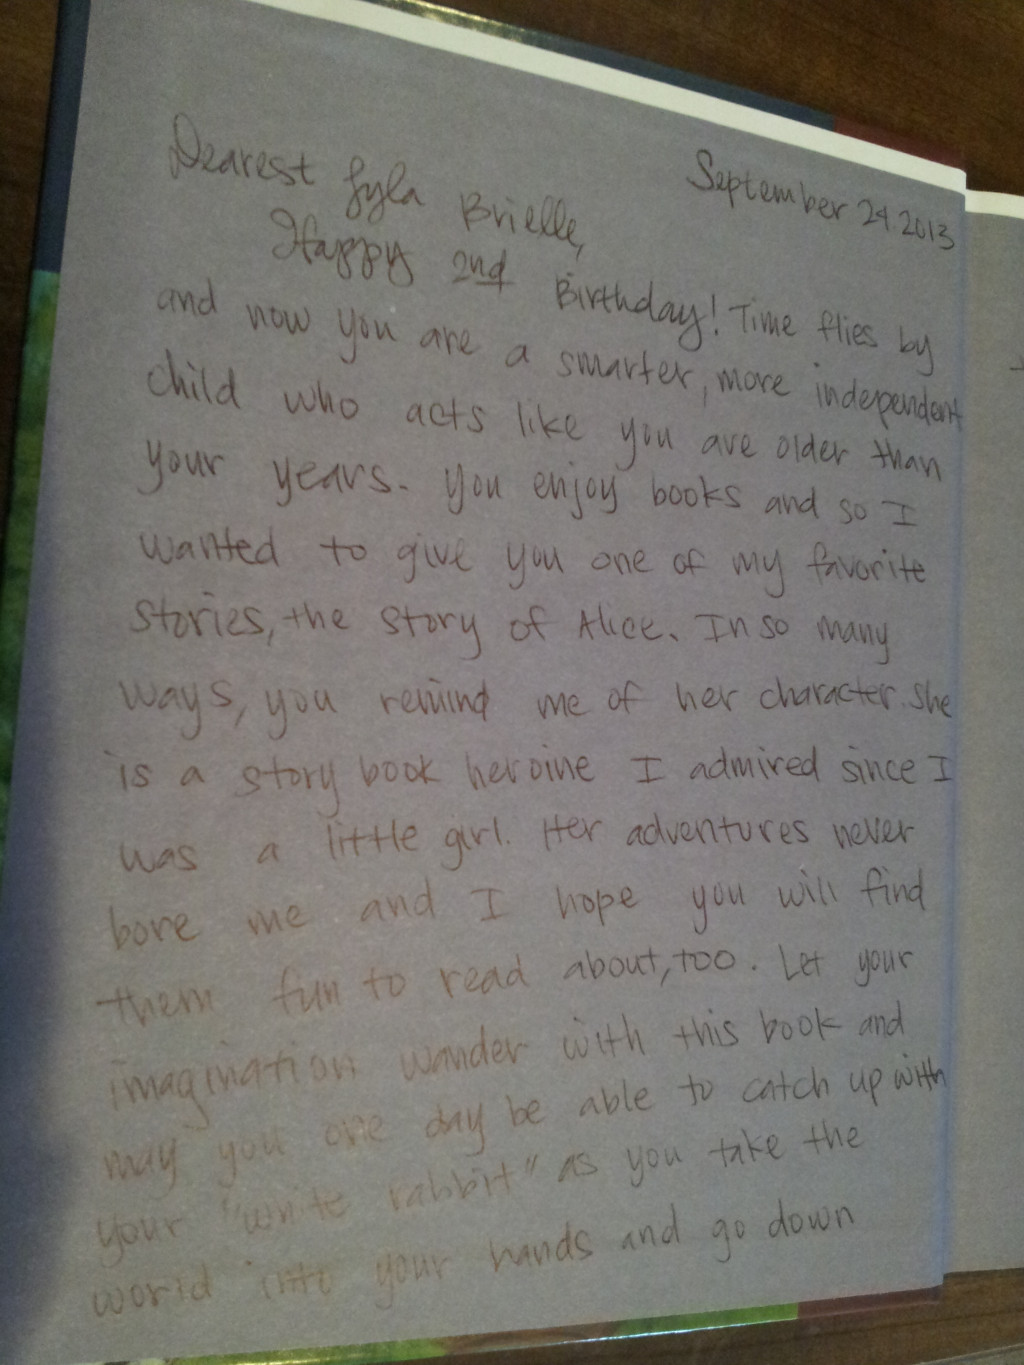 September 24 2013
Dearest Lyla Brielle,
Happy 2nd Birthday! Time flies by
and now you are a smarter, more independent
child who acts like you are older than
your years. You enjoy books and so I
wanted to give you one of my favorite
stories, the story of Alice. In so many
ways, you remind me of her character. She
is a story book heroine I admired since I
was a little girl. Her adventures never
bore me and I hope you will find
them fun to read about, too. Let your
imagination wander with this book and
may you one day be able to catch up with
your "white rabbit" as you take the
world into your hands and go down